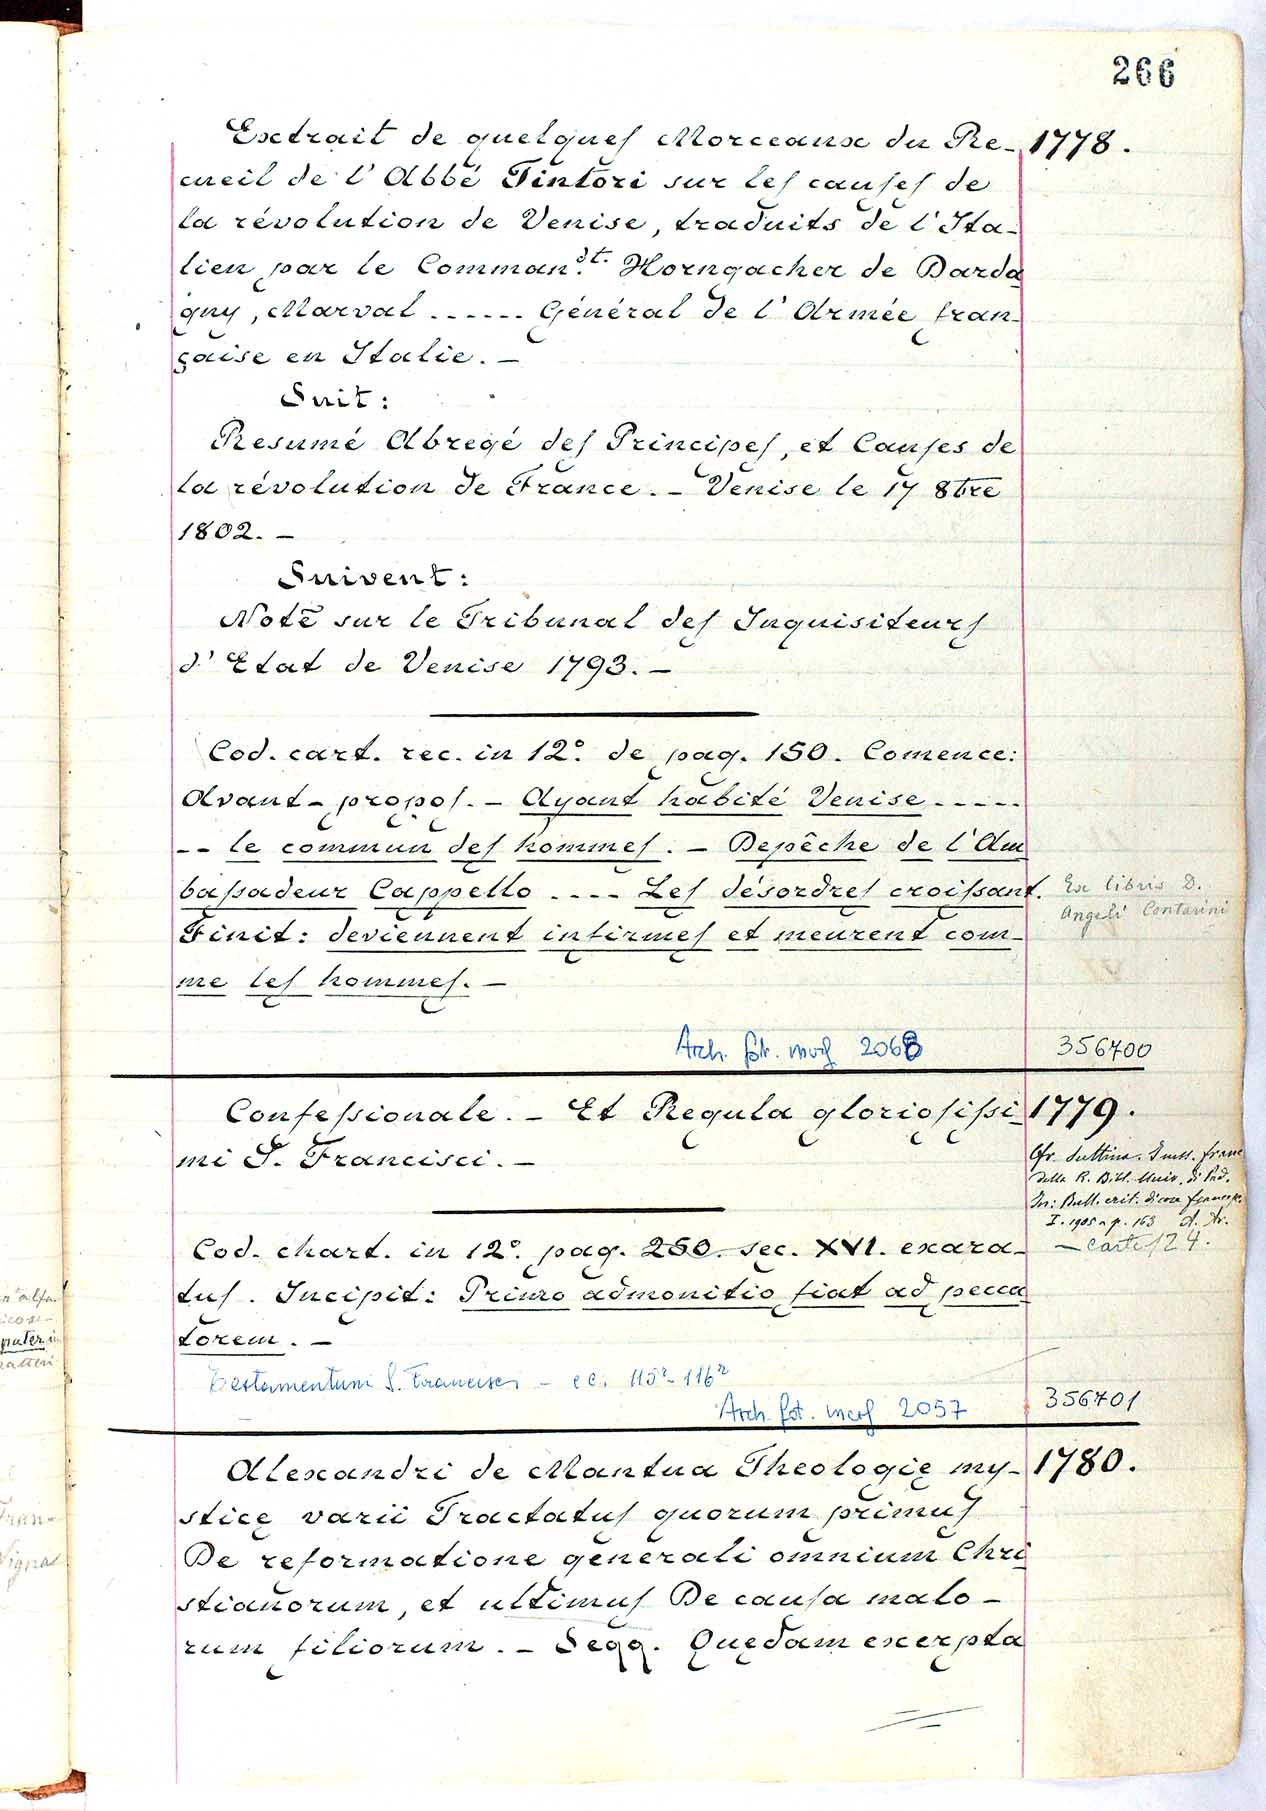 266
Extrait de quelques Morceaux du Re- 1778.
cueil de l'Abbé Tintori sur les causes de
la révolution de Venise, traduits de l'Ita-
lien par le Comman.dt Horngacher de Darda
gny, Marval ...... Général de l'Armée fran-
çaise en Italie. -
Suit:
Resumé Abregé des Principes, et Causes de
la révolution de France. - Venise le 17 8bre
1802. -
Suivent:
Note sur le Tribunal des Inquisiteurs
d'Etat de Venise 1793. -
Cod. cart. rec. in 12º. de pag. 150. Comence:
Avant-propos. - Ayant habité Venise .....
-- le commun des hommes. - Depêche de l'Am
bassadeur Cappello .... Les désordres croissant.
Ex libris D.
Angeli Contarini
Finit: deviennent infirmes et meurent com-
me les hommes. -
Arch. fot. 2068 356700
Confessionale. - Et Regula gloriosissi- 1779.
mi S. Francisci. -
della R. Bibl. Univ. di Pad.
I. 1905 p. 163
Cod. chart. in 12º. pag. 250. sec. XVI. exara-
- carte 124.
tus. Incipit: Primo admonitio fiat ad pecca
torem. -
Testamentum S. Francisci - cc. 115r-116r
Arch. fot. 2057 356701
Alexandri de Mantua Theologię my- 1780.
sticę varii Tractatus quorum primus
De reformatione generali omnium Chri
stianorum, et ultimus De causa malo-
rum filiorum. - Segq. Quędam excerpta